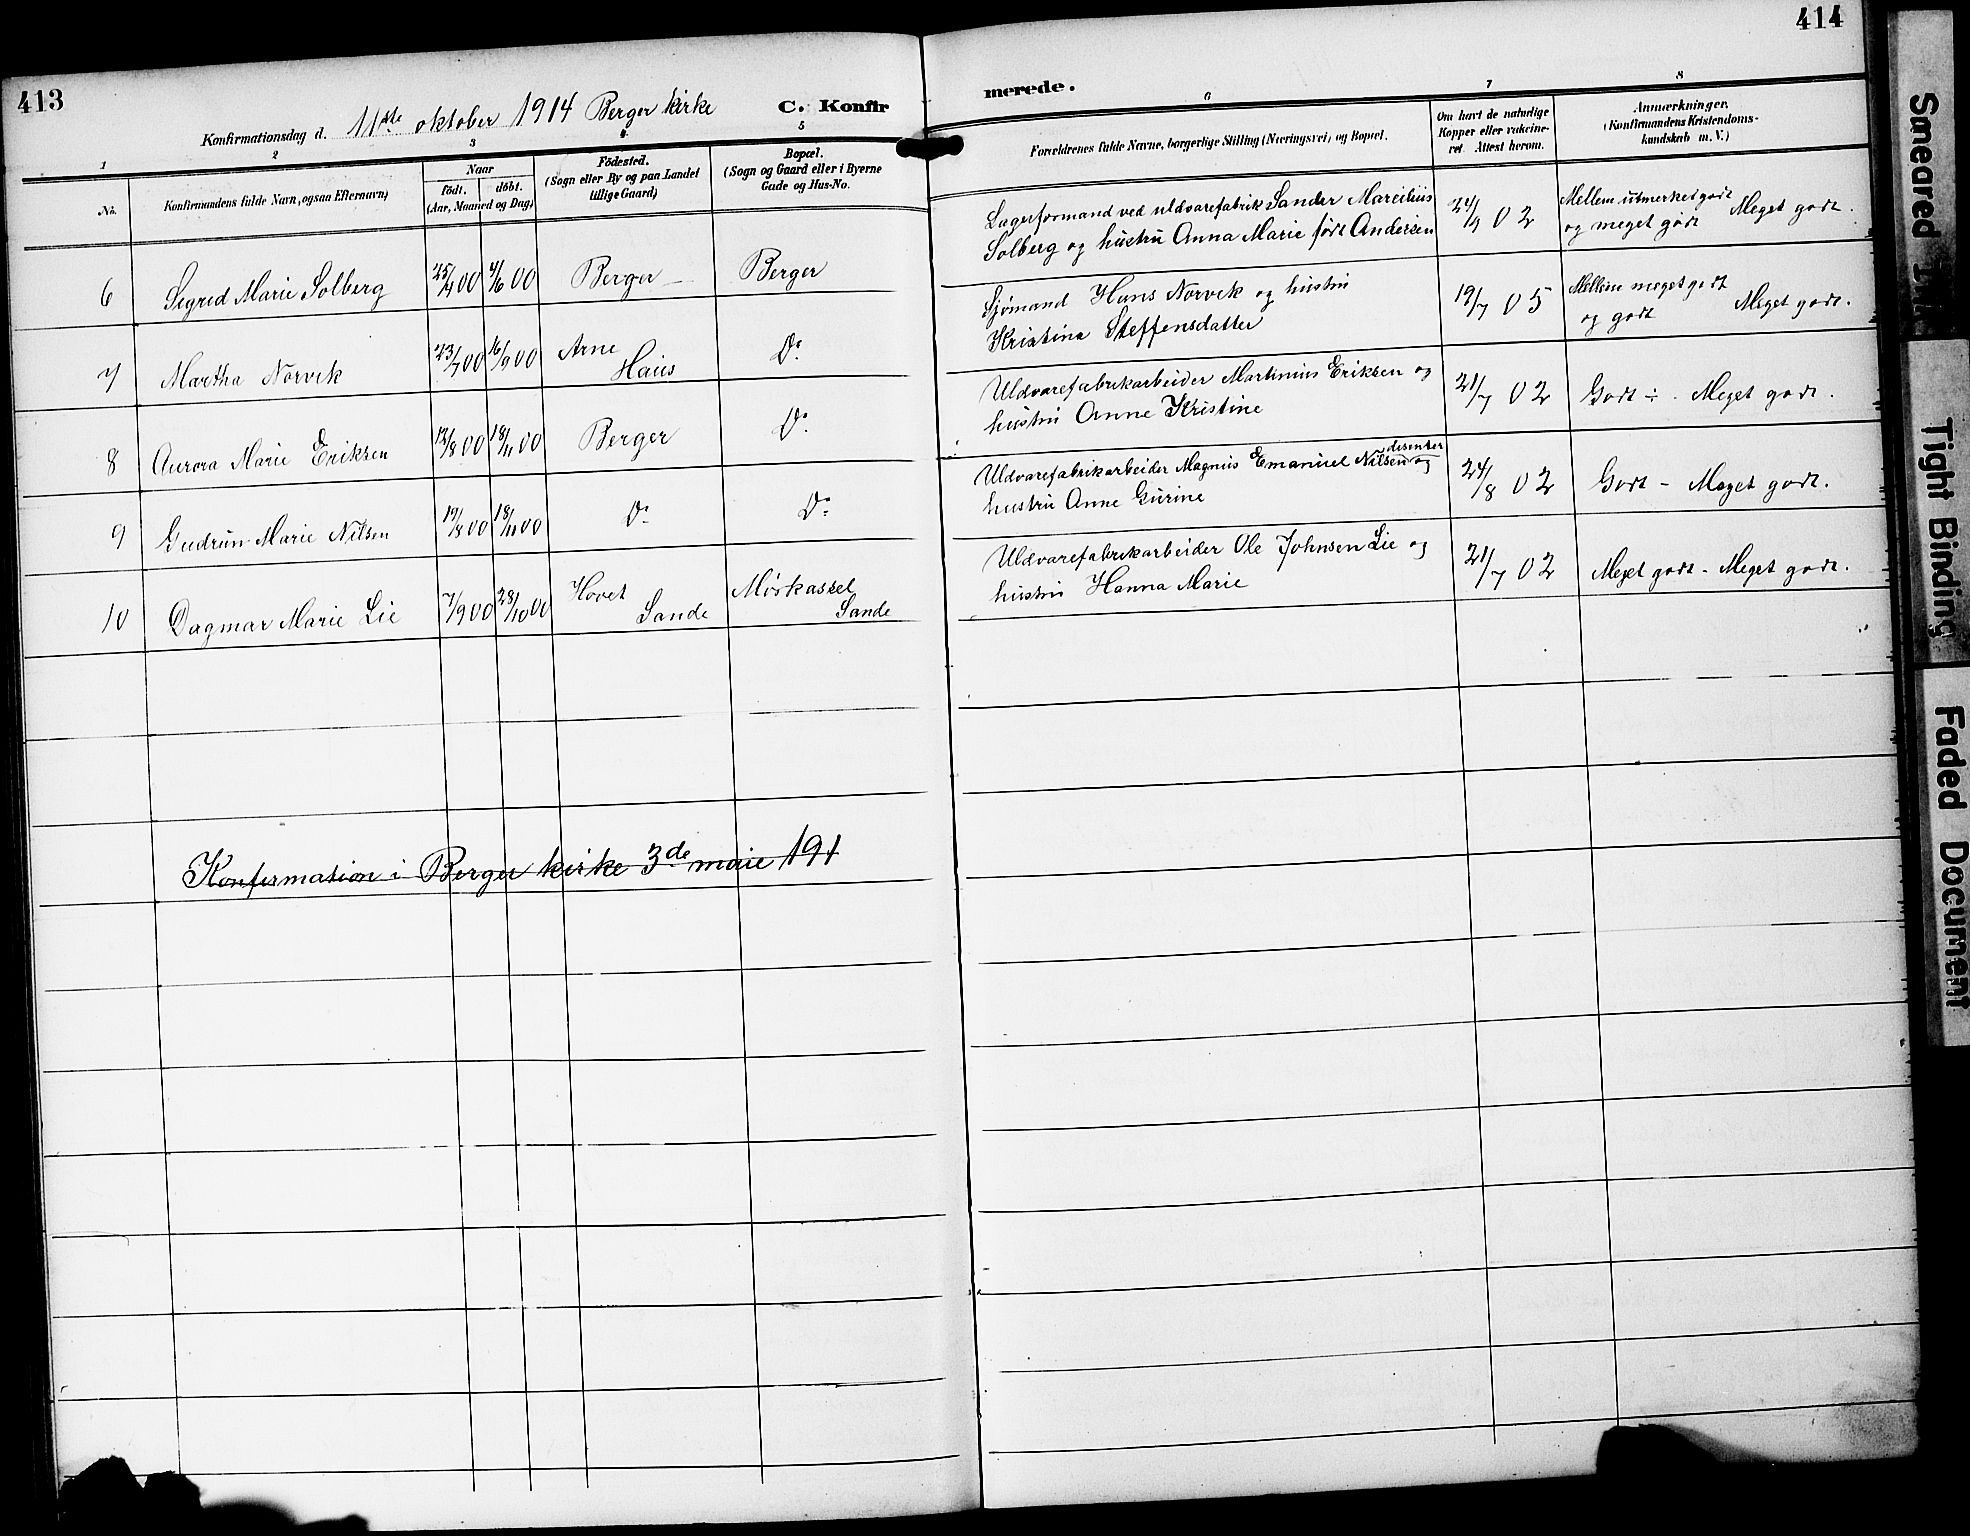 413
Konfirmationsdag d. 11te oktober 1914 Berger kirke C. Konfir
1 2 3 4 5
No.
Konfirmandens fulde Navn, ogsaa Efternavn)
Naar
født. døbt.
(Aar, Maaned og Dag)
Fødested.
(Sogn eller By og paa Landet
tillige Gaard)
Bopæl.
(Sogn og Gaard eller i Byerne
Gade og Hus-No.
6 Sigrid Marie Solberg 25/4 00 4/6 00 Berger Berger
7 Martha Norvik 23/7 00 16/9 00 Arne Haus Do
8 Aurora Marie Eriksen 12/8 00 18/11 00 Berger Do
9 Gudrun Marie Nilsen 19/8 00 18/11 00 Do Do
10 Dagmar Marie Lie 7/9 00 28/10 00 Hovet Sande Mørkassel Sande
Konfirmation i Berger kirke 3de maie 191
414
merede.
6 7 8
Forældrenes fulde Navne, borgerlige Stilling (Næringsvei) og Bopæl.
Om havt de naturlige
Kopper eller vakcine-
ret. Attest herom.
Anmærkninger.
(Konfirmandens Kristendoms-
kundskab m. V.)
Lagerformand ved uldvarefabrik Sander Marcilius
Solberg og hustru Anna Marie født Andersen
24/9 02
Mellem utmerket godt
og meget godt Meget godt.
Sjømand Hans Norvik og hustru
Kristina Steffensdatter
19/7 05
Mellem meget godt
og godt Meget godt.
Uldvarefabrikarbeider Martinius Eriksen og
hustru Anne Kristine
21/7 02 Godt ÷. Meget godt.
disenter
Uldvarefabrikarbeider Magnus Emanuel Nilsen og
hustru Anne Gurine
24/8 02 Godt - Meget godt.
Uldvarefabrikarbeider Ole Johnsen Lie og
hustru Hanna Marie
21/7 02 Meget godt - Meget godt.
Smeared
Tight Binding
Faded Document